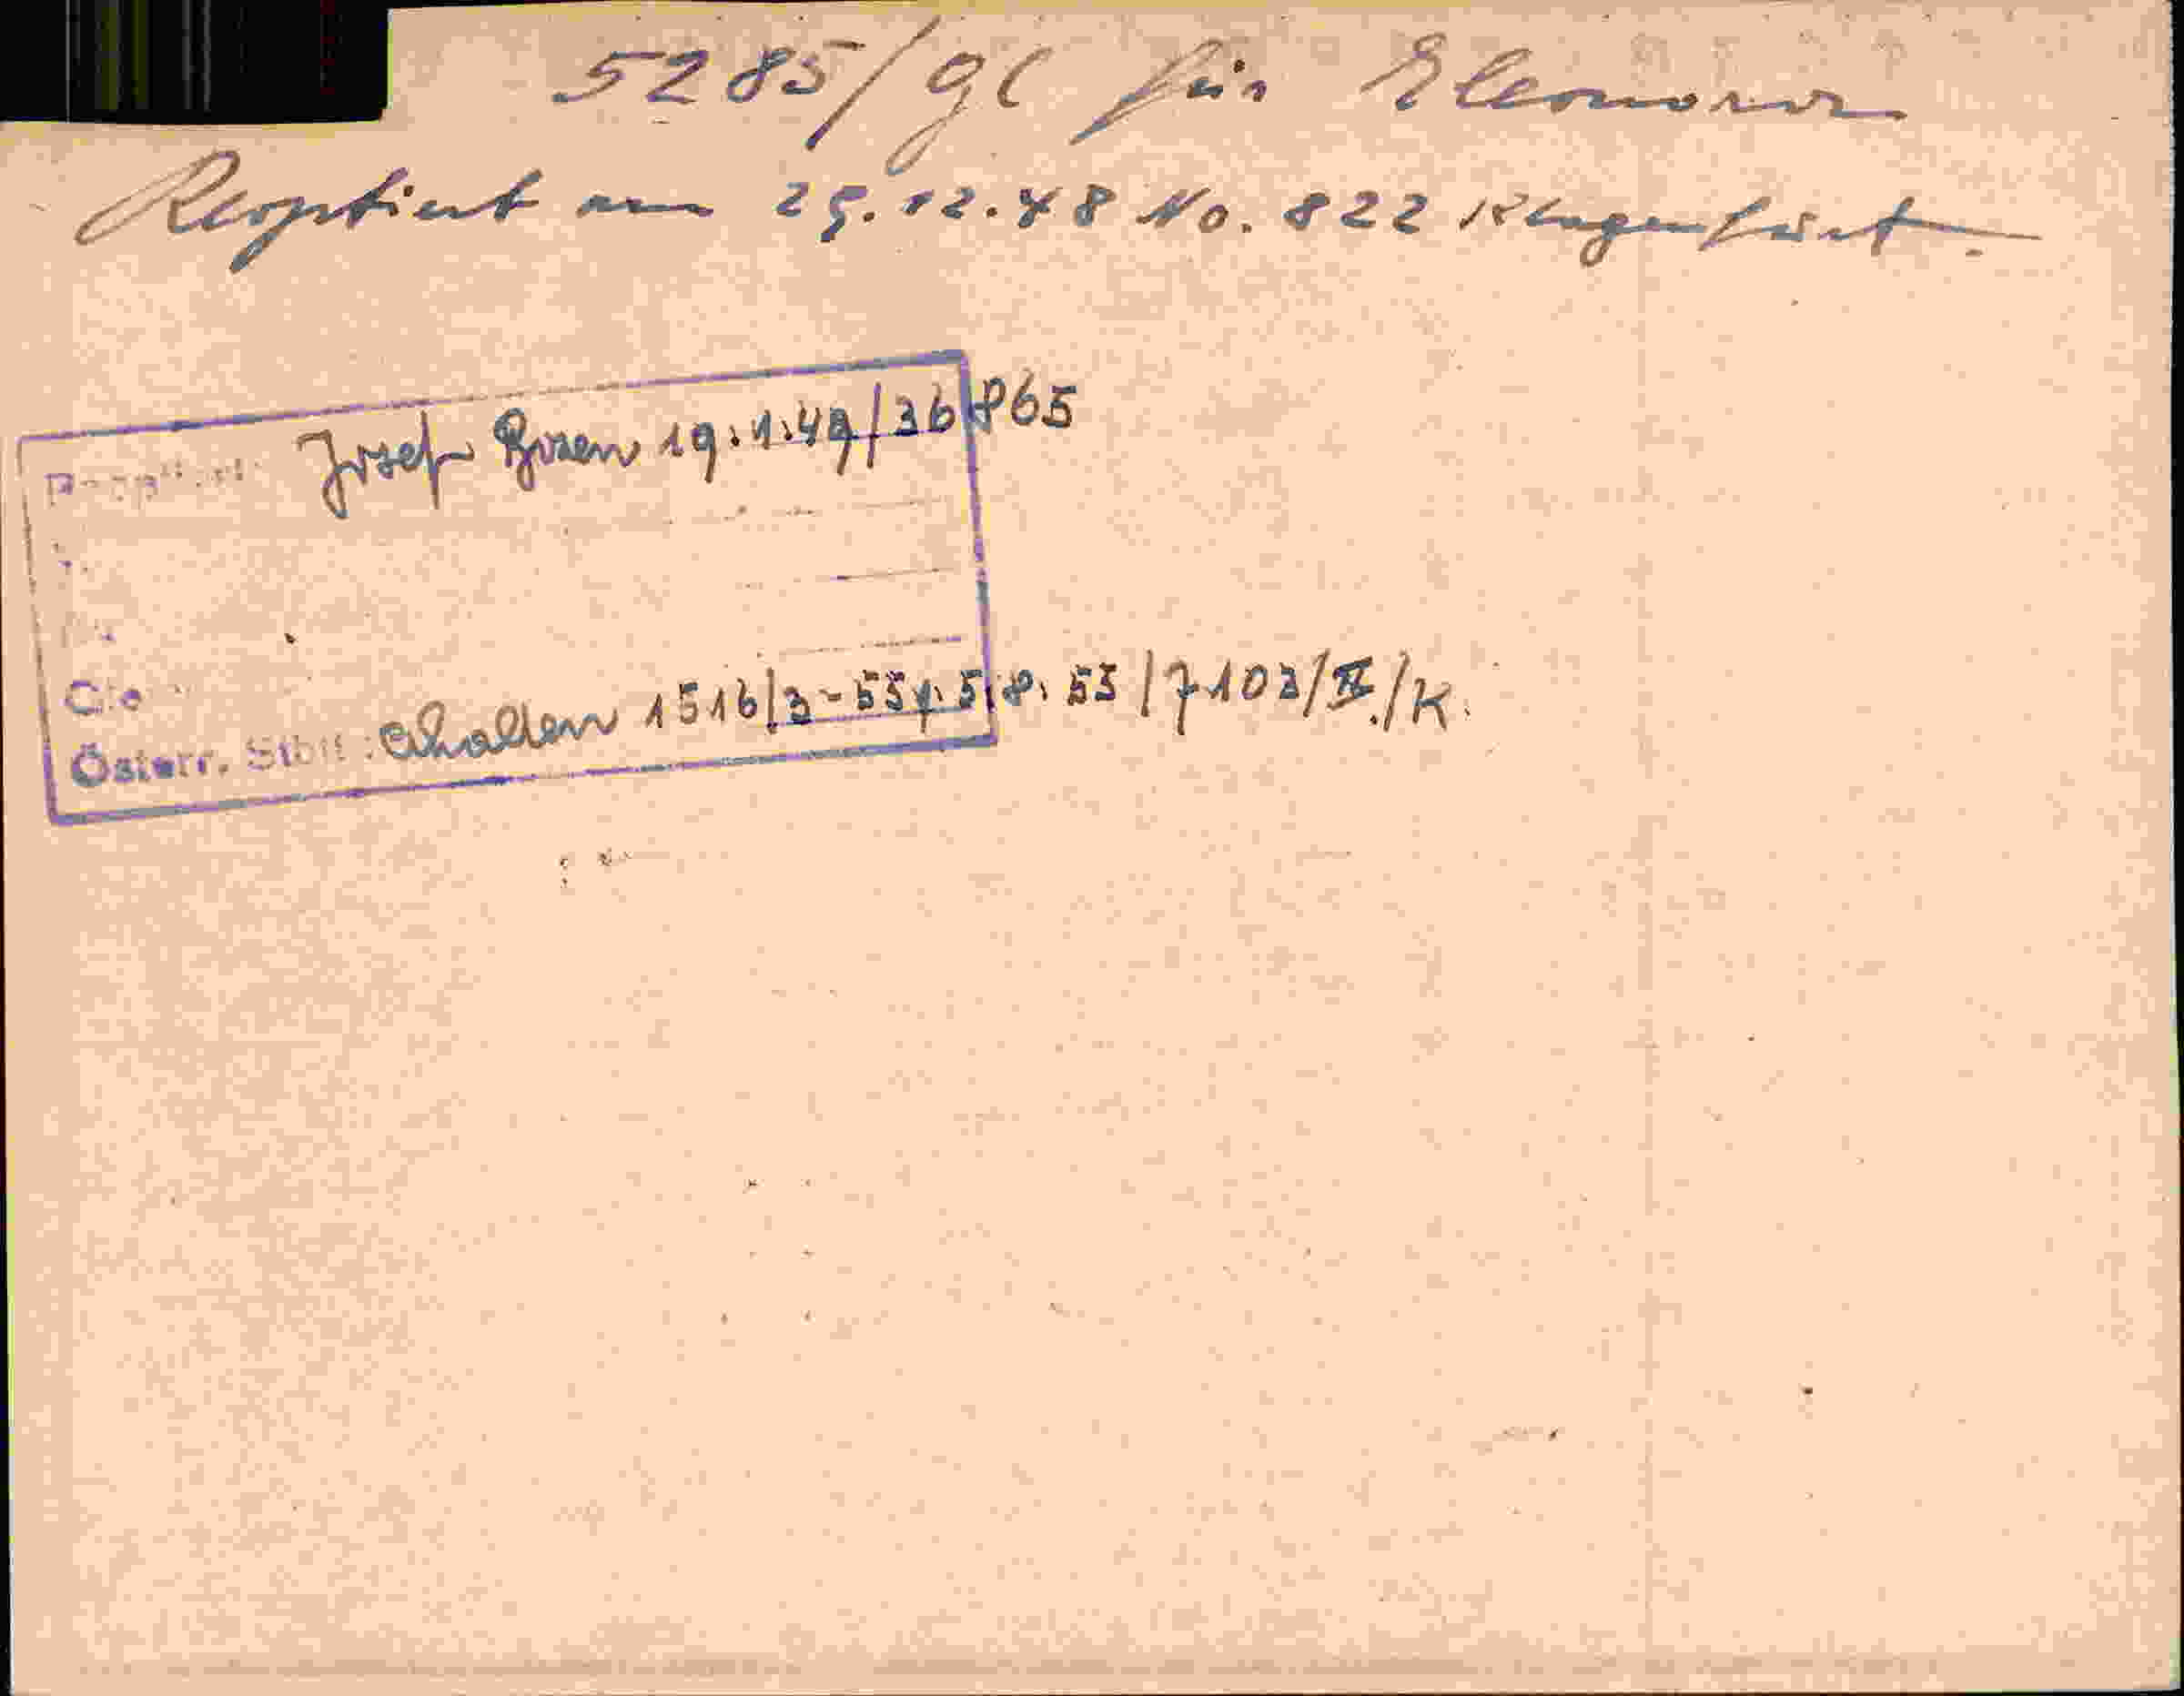 5285/gl für Eleonora
Reoptiert am 29.12.48 No. 822 Klagenfurt.
Josef Bozen 19.1.49/36865
Österr. Stbü: erhalten 1516/3-55 v. 5.8.55/7103/II./K.